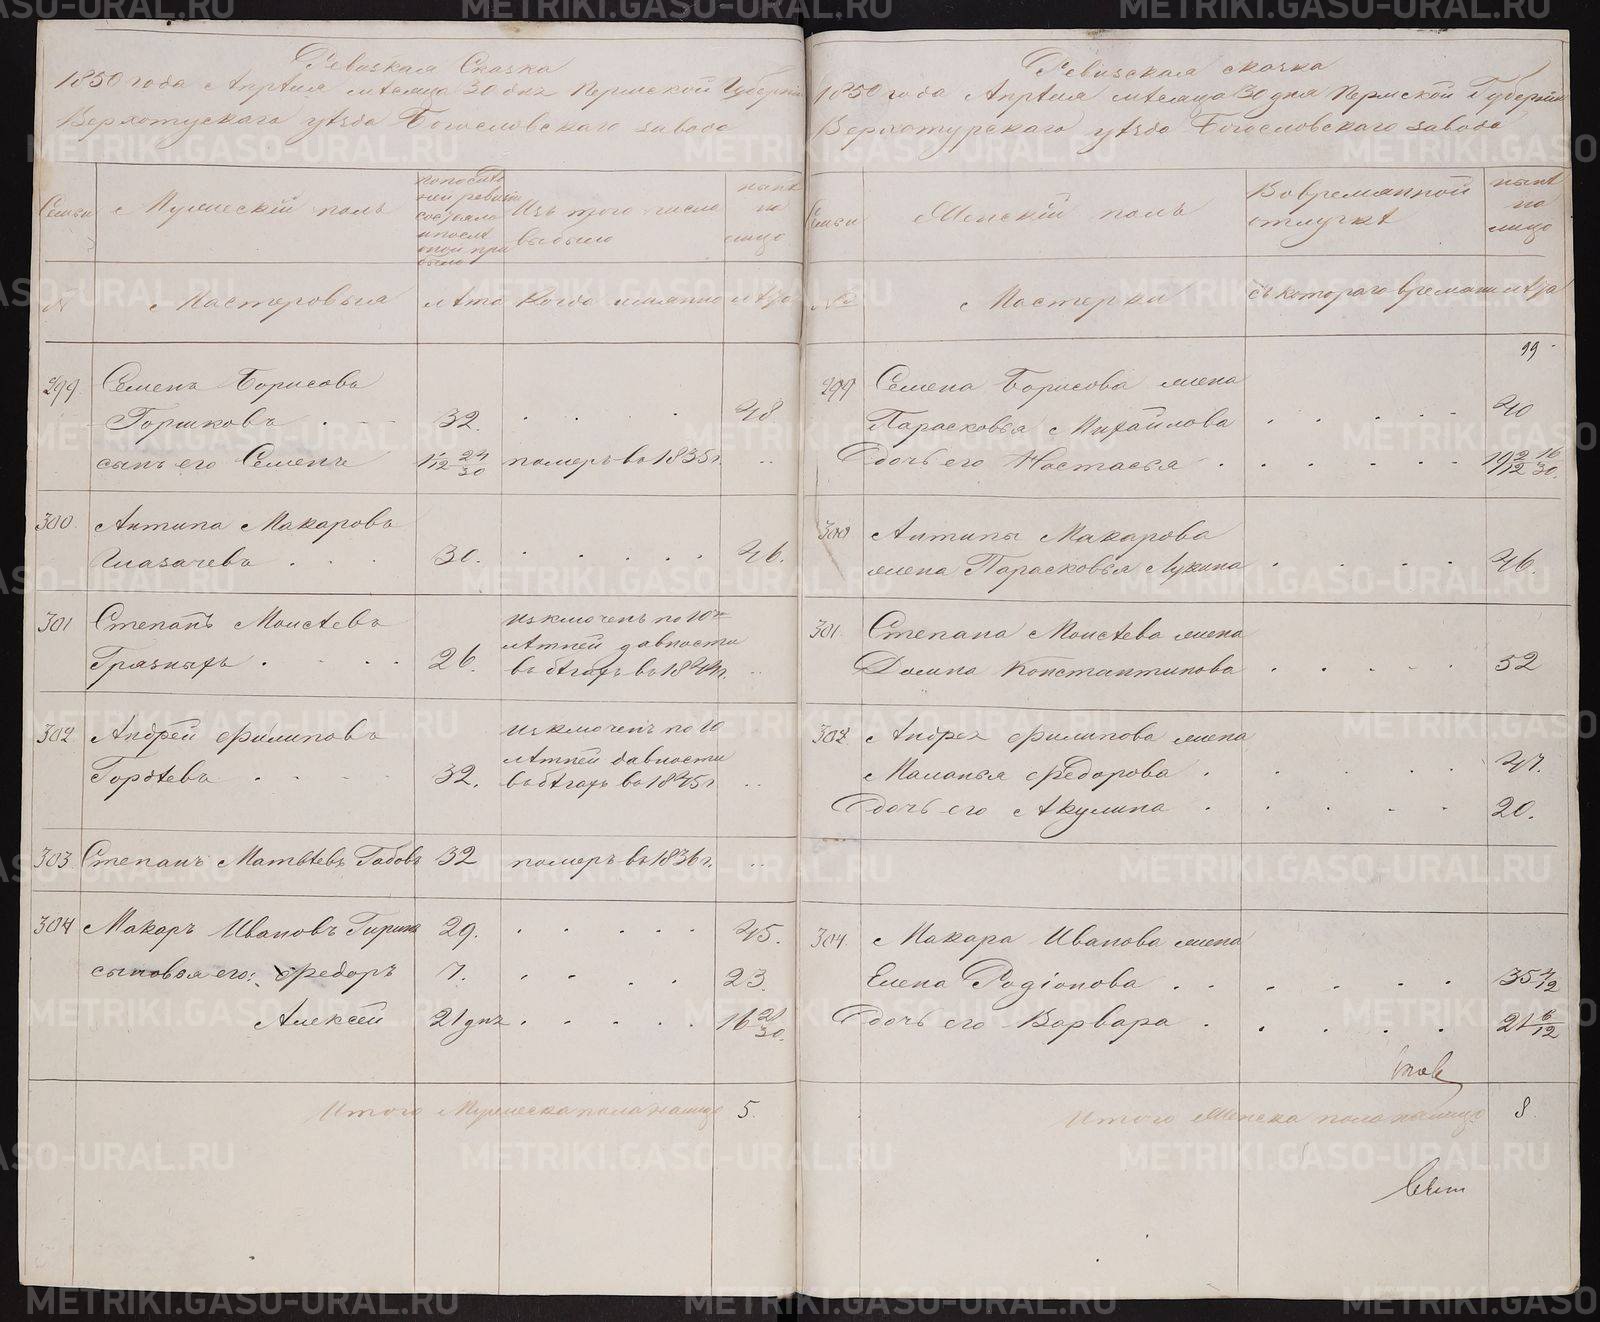 Ревизкая Сказка
1850 года Апрѣля мѣсяца 30 днz Пермской Губерніи
Верхотускаго уѣзда Богословскаго завода
Семьи
Мужескій полъ
Изъ того числа выбыло
нынѣ на лицо
№
Мастеровыя
лѣта
Когда имянно
лѣта
299
Семенъ Борисовъ
Горшковъ 32. 48
сынъ его Семенъ 1 1/12 24/30 померъ въ 1835 г.
300.
Антипа Макаровъ
Глазачевъ 30. 46.
301
Степанъ Моисѣевъ
Грязныхъ 26.
изключенъ по 10ти
лѣтней давности
въ бѣгахъ въ 1844 г.
302
Андрей Филиповъ
Гордѣевъ 32.
изключенъ по 10
лѣтней давности
въ бѣгахъ въ 1845 г.
303
Степанъ Матвѣевъ Габовъ 32 померъ въ 1836 г.
304
Макаръ Ивановъ 29. 45.
сыновья его: Федоръ 7. 23.
Алексей 21 днz 16 21/30.
Итого Мужеска пола налицо 5.
Ревизская сказка
1850 года Апрѣля мѣсяца 30 дня Пермской Губерніи
Верхотурскаго уѣзда Богословскаго завода
Семьи
Женскій полъ
Во временной отлучкѣ
нынѣ на лицо
№
Мастерки
съ котораго времяни
лѣта
99
299
Семена Борисова жена
Парасковья Михайлова 40
Дочь его Настасья 19 2/12 16/30.
300
Антипы Макарова
жена Парасковья Лукина 46.
301.
Степана Моисѣева жена
Домна Константинова 52
302
Андрея Филипова жена
Маланья Федорова 47.
Дочь его Акулина 20.
304.
Макара Иванова жена
Елена Родіонова 35 4/12
Дочь его Варвара 21 6/12
Итого Женска пола налицо 8
METRIKI.GASO-URAL.RU